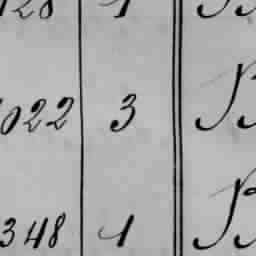 128 1 B
1022 3 B
348 1 B